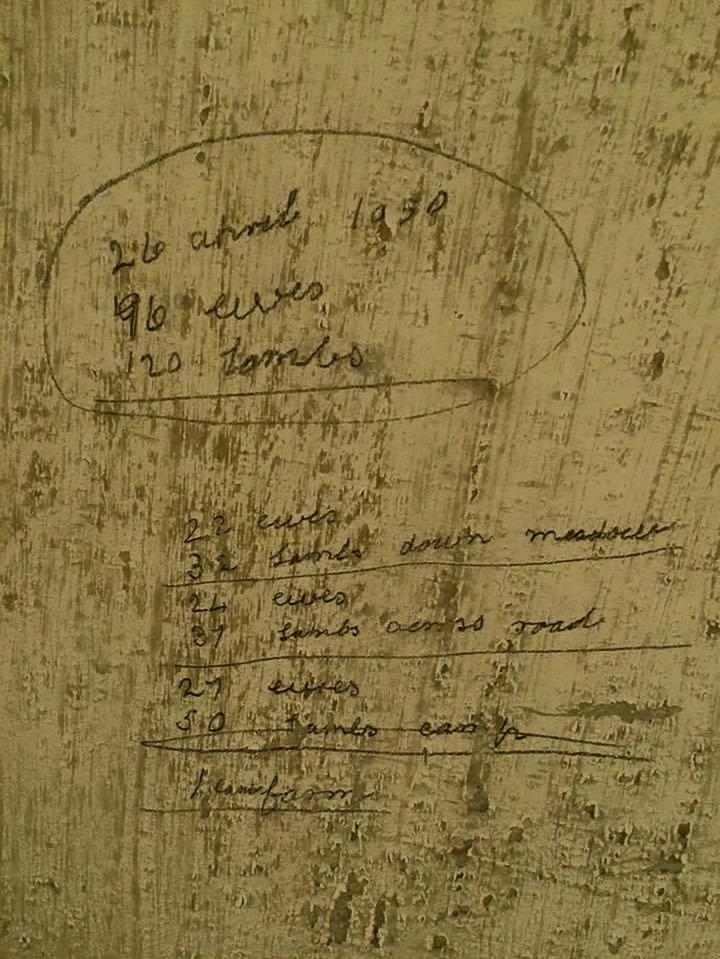 26 april 1950
96 ewes
120 lambs
22 ewes
32 lambs down meadow
24 ewes
37 lambs across road
27 ewes
50 lambs
farm